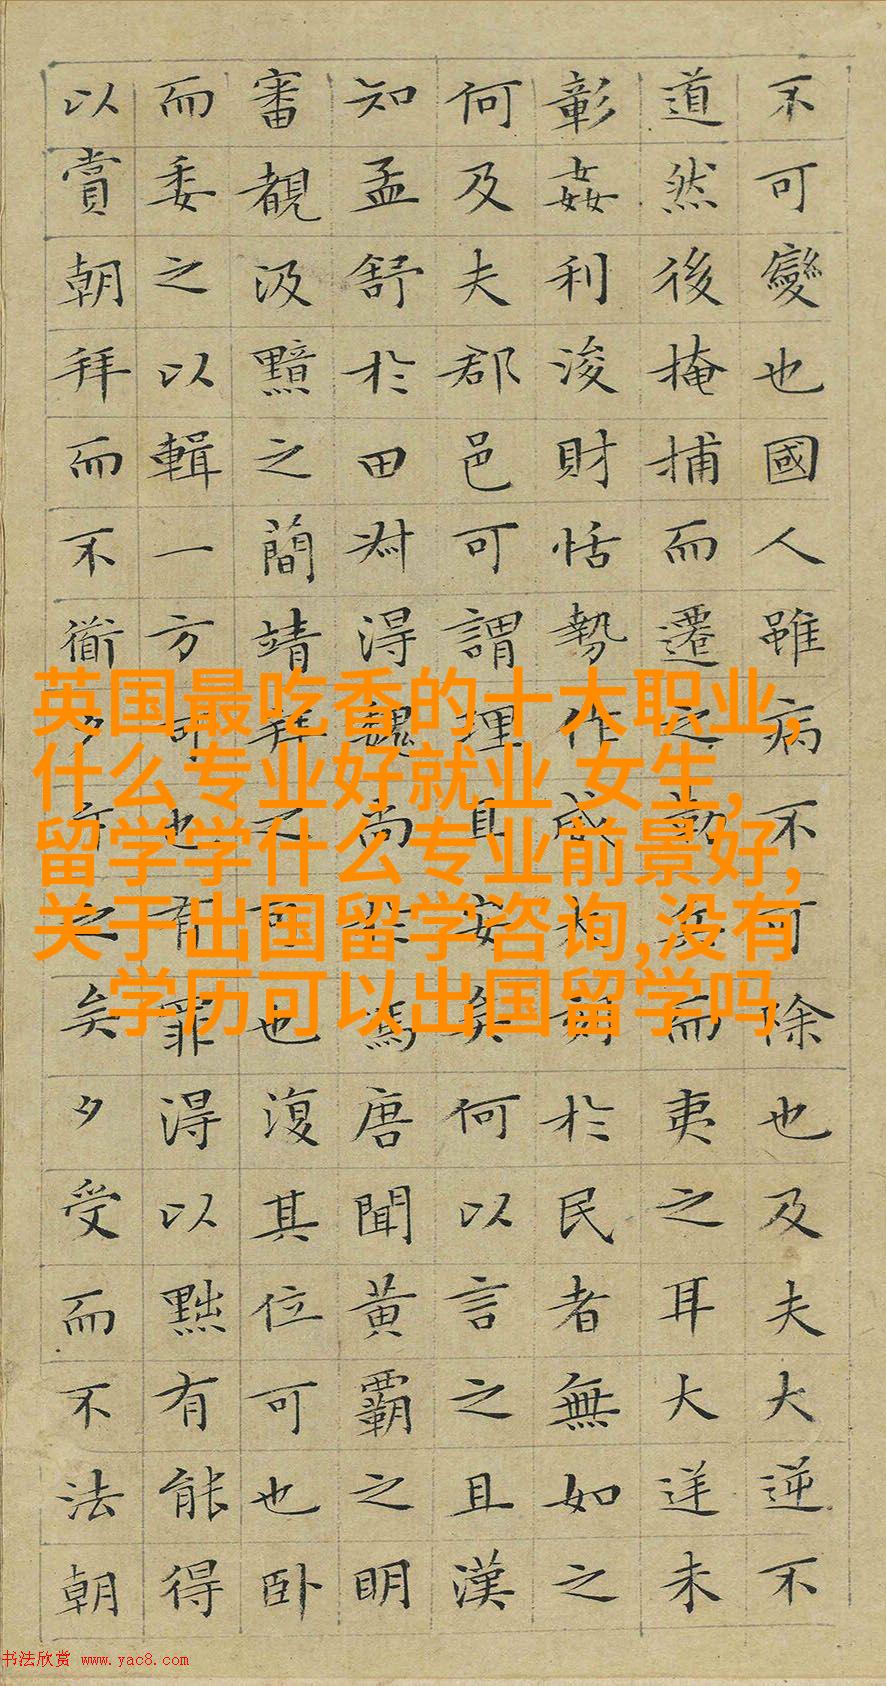 不可變也國人雖病不可除也及夫大逆不
道然後掩捕而遷之勒兵而夷之耳大逆未
彰姦利浚財怙勢作威大刻於民者無如之
何及夫郡邑可謂理且安矣何以言之且漢
知孟舒於田叔得魏尚於馮唐聞黃霸之明
審覩汲黯之簡靖拜之可也復其位可也卧
而委之以輯一方可也有罪得以黜有能得
以賞朝拜而不衜夕斥之矣夕受而不法朝
英国最吃香的十大职业,
什么专业好就业 女生,
留学学什么专业前景好,
关于出国留学咨询,没有
学历可以出国留学吗
书法欣赏 www.yac8.com